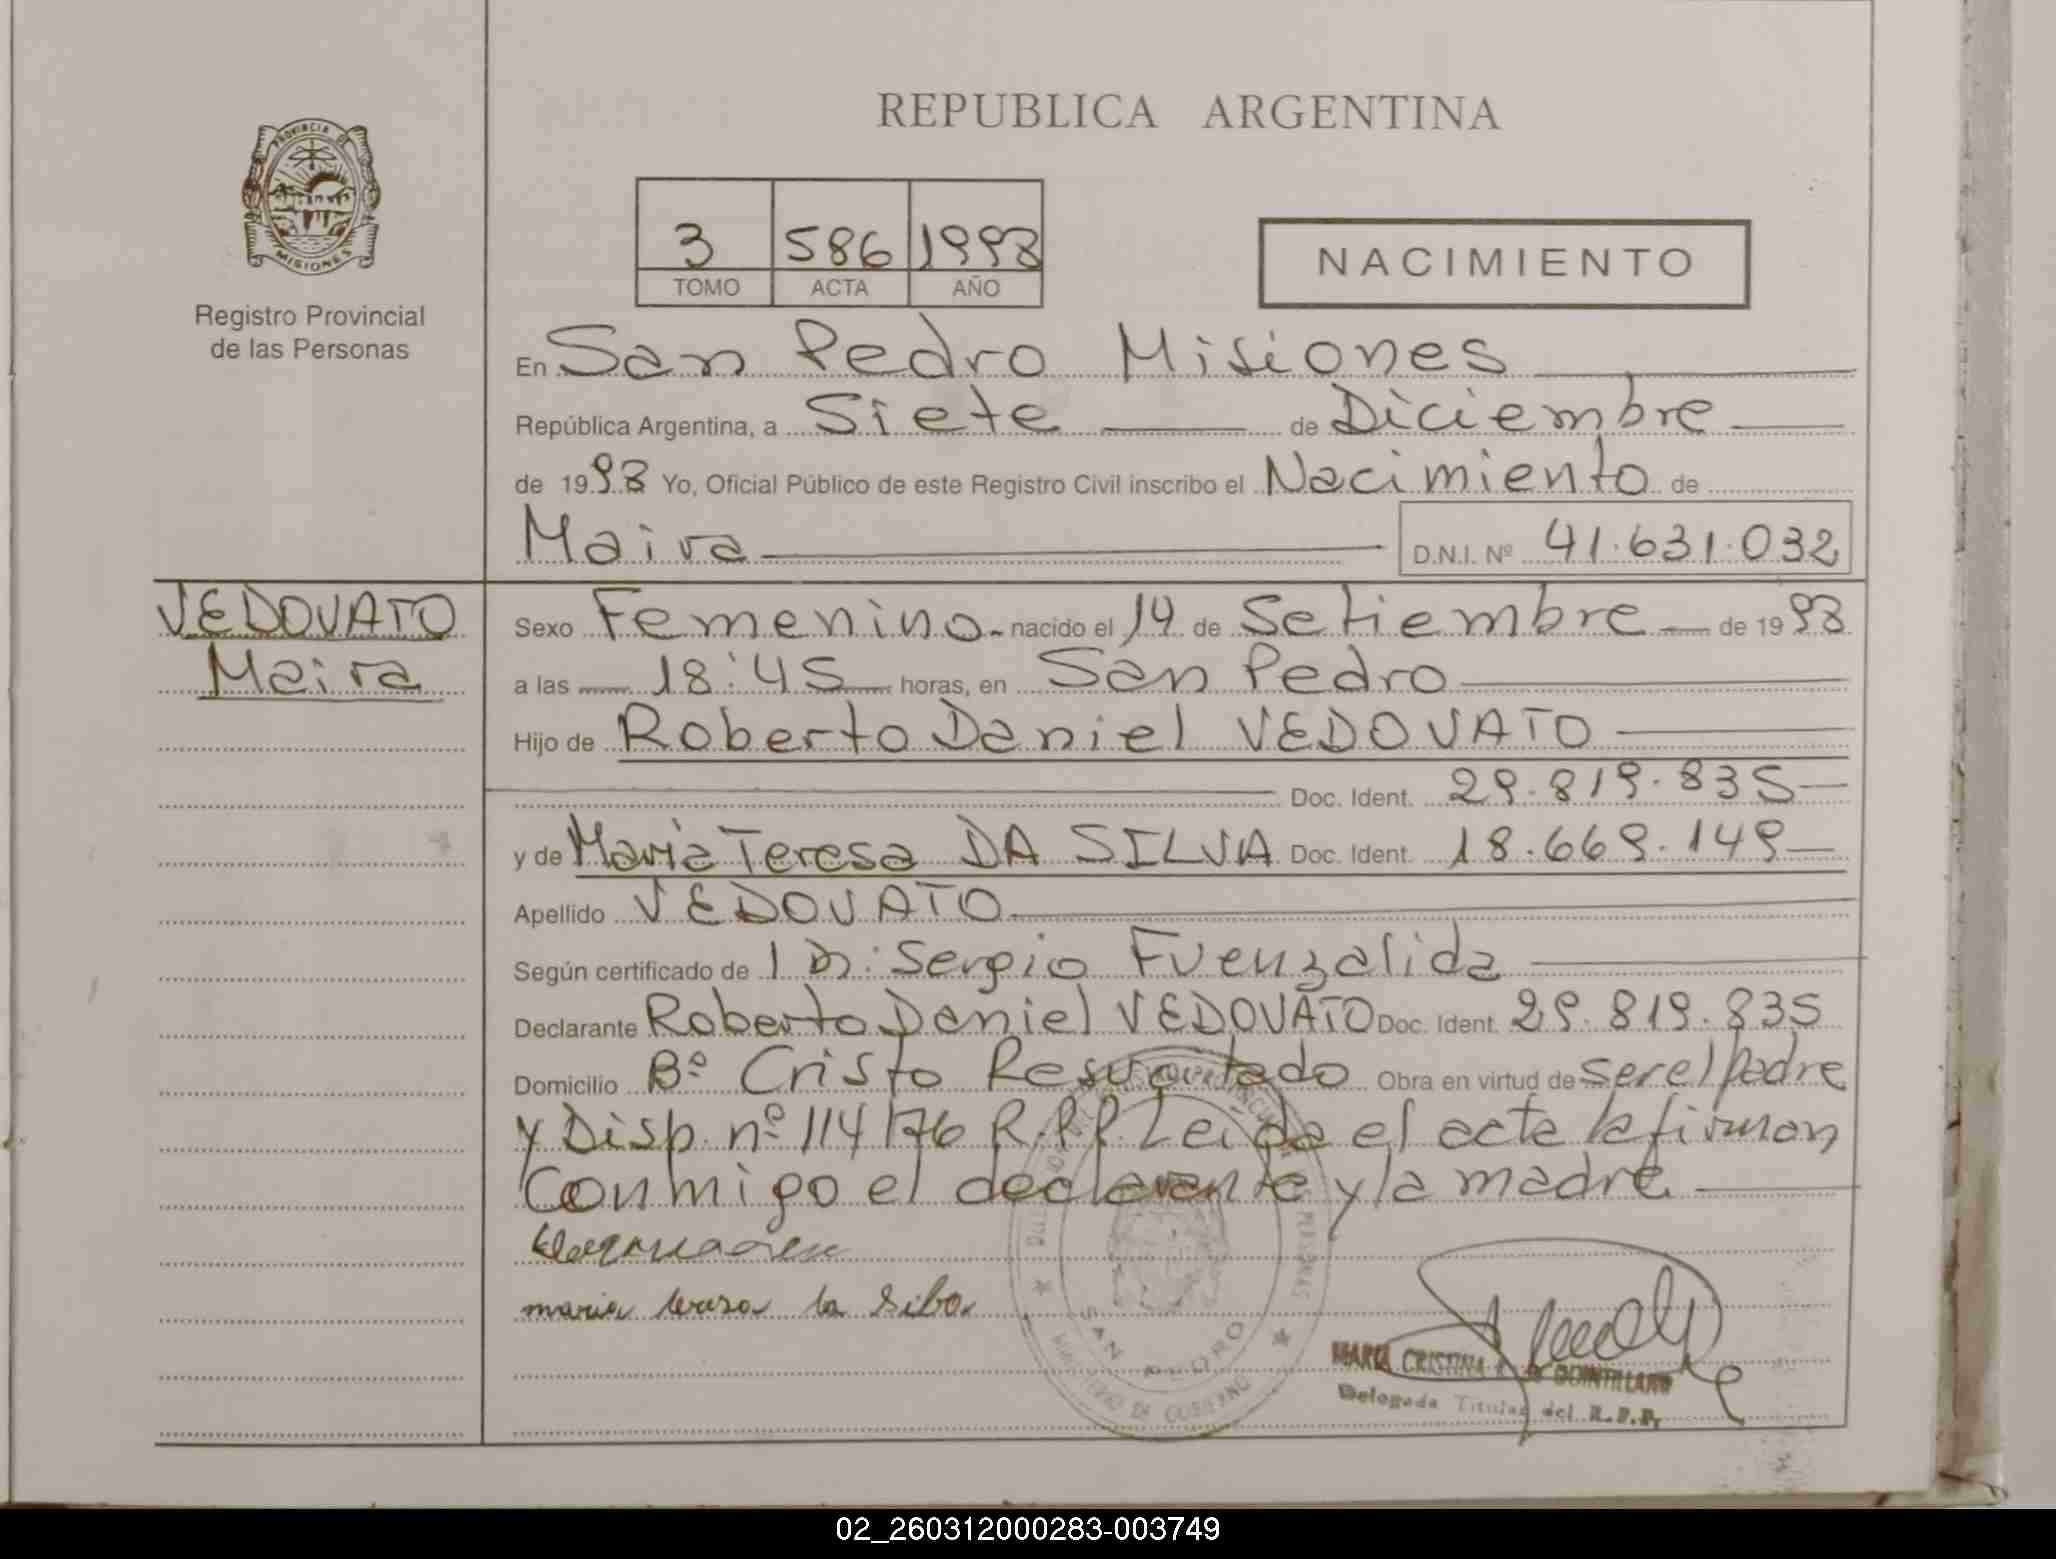 REPUBLICA ARGENTINA
PROVINCIA DE
MISIONES
Registro Provincial
de las Personas
3 586 1998
TOMO ACTA AÑO
NACIMIENTO
En San Pedro Misiones
República Argentina, a Siete de Diciembre
de 1998 Yo, Oficial Público de este Registro Civil inscribo el Nacimiento de
Maira D.N.I. Nº 41.631.032
VEDOVATO
Maira
Sexo Femenino nacido el 14 de Setiembre de 1998
a las 18:45 horas, en San Pedro
Hijo de Roberto Daniel VEDOVATO
Doc. Ident. 29.819.835
y de Maria Teresa DA SILVA Doc. Ident. 18.669.149
Apellido VEDOVATO
Según certificado de 1 Dr: Sergio Fuenzalida
Declarante Roberto Daniel VEDOVATO Doc. Ident. 29.819.835
Domicilio Bº Cristo Resucitado Obra en virtud de ser el padre
y Disp. nº 114/76 R.P.P. Leída el acta la firman
Conmigo el declarante y la madre
maria teresa da Silva
SAN PEDRO
MINISTERIO DE GOBIERNO
MARIA CRISTINA DE QUINTILLANO
Delegada Titular del R.P.P.
02_260312000283-003749